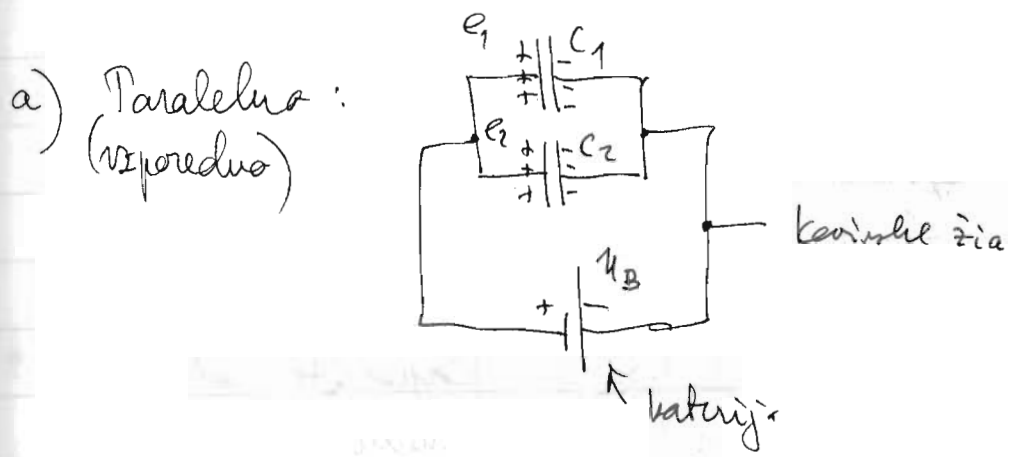 a) Paralelno :
(vzporedno)
e₁ C₁
e₂ C₂
U_B
kovinske žica
baterija